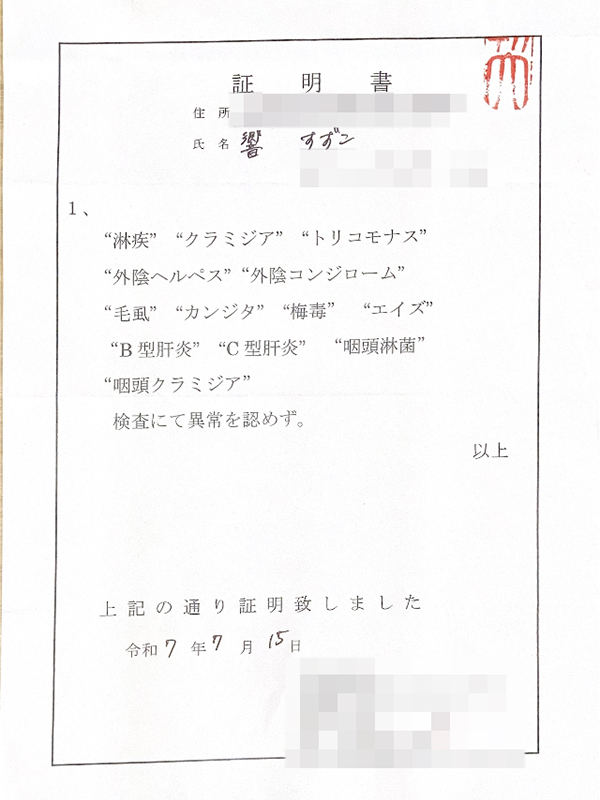 証明書
住所
氏名 響 すずこ
1、
“淋疾” “クラミジア” “トリコモナス”
“外陰ヘルペス” “外陰コンジローム”
“毛虱” “カンジタ” “梅毒” “エイズ”
“B型肝炎” “C型肝炎” “咽頭淋菌”
“咽頭クラミジア”
検査にて異常を認めず。
以上
上記の通り証明致しました
令和7年7月15日